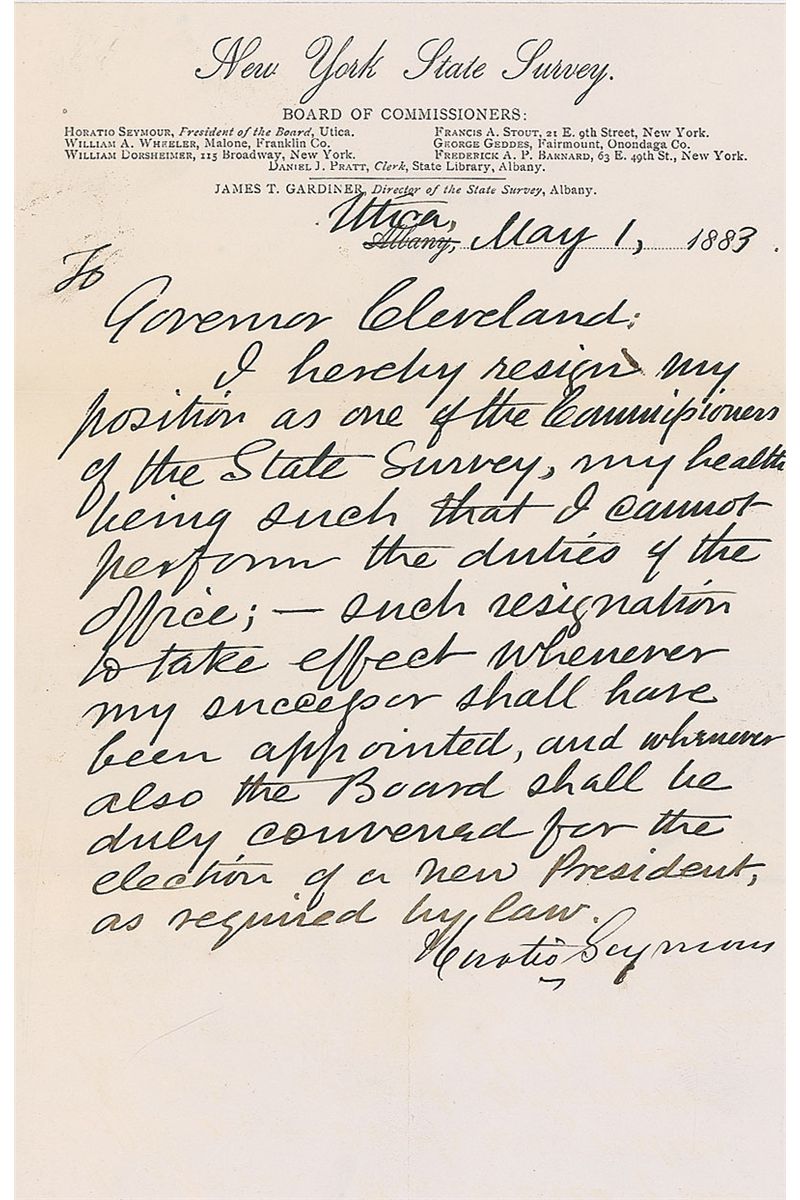 New York State Survey.
BOARD OF COMMISSIONERS:
HORATIO SEYMOUR, President of the Board, Utica.
WILLIAM A. WHEELER, Malone, Franklin Co.
WILLIAM DORSHEIMER, 115 Broadway, New York.
FRANCIS A. STOUT, 21 E. 9th Street, New York.
GEORGE GEDDES, Fairmount, Onondaga Co.
FREDERICK A. P. BARNARD, 63 E. 49th St., New York.
DANIEL J. PRATT, Clerk, State Library, Albany.
JAMES T. GARDINER, Director of the State Survey, Albany.
Utica,
Albany, May 1, 1883.
To
Governor Cleveland:
I hereby resign my
position as one of the Commissioners
of the State Survey, my health
being such that I cannot
perform the duties of the
office; — such resignation
to take effect whenever
my successor shall have
been appointed, and whenever
also the Board shall be
duly convened for the
election of a new President,
as required by law.
Horatio Seymour